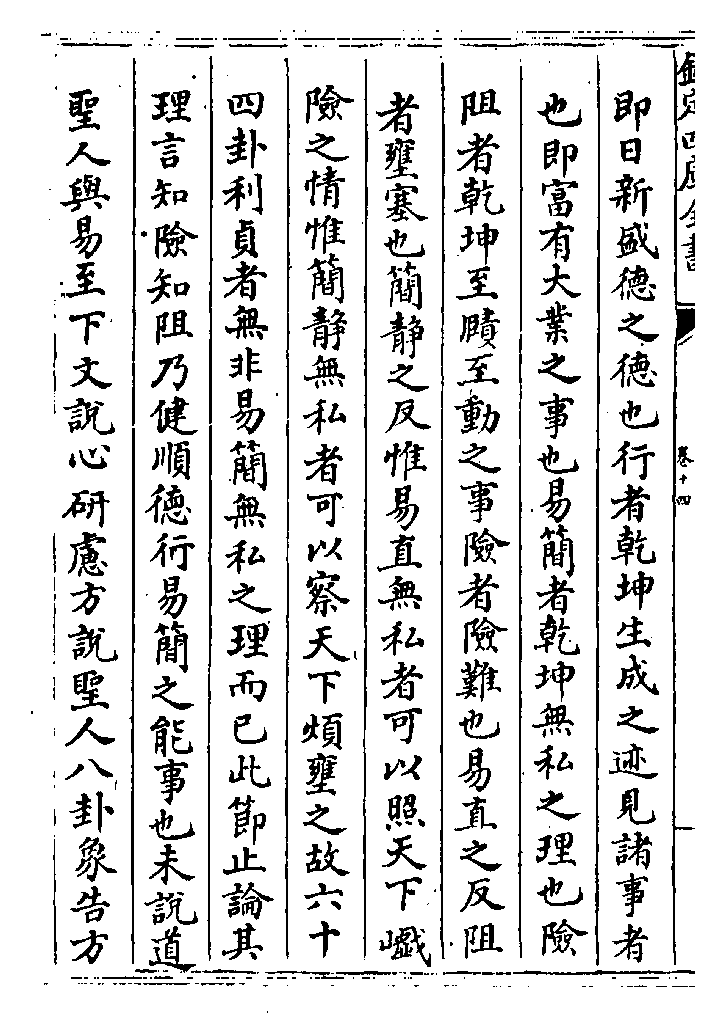 欽定四庫全書
卷十四
即日新盛德之德也行者乾坤生成之迹見諸事者
也即富有大業之事也易簡者乾坤無私之理也險
阻者乾坤至賾至動之事險者險難也易直之反阻
者壅塞也簡靜之反惟易直無私者可以照天下巇
險之情惟簡靜無私者可以察天下煩壅之故六十
四卦利貞者無非易簡無私之理而已此節止論其
理言知險知阻乃健順德行易簡之能事也未說道
聖人與易至下文說心研慮方說聖人八卦象告方